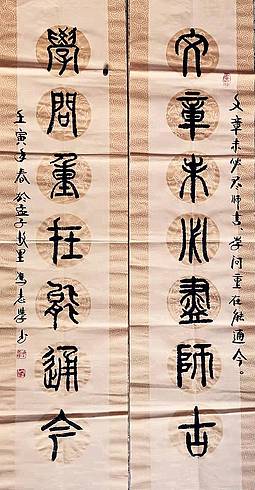 文章未必盡師古
文章未必尽师古、学问重在能通今。
學問重在能通今
壬寅年春於孟子故里